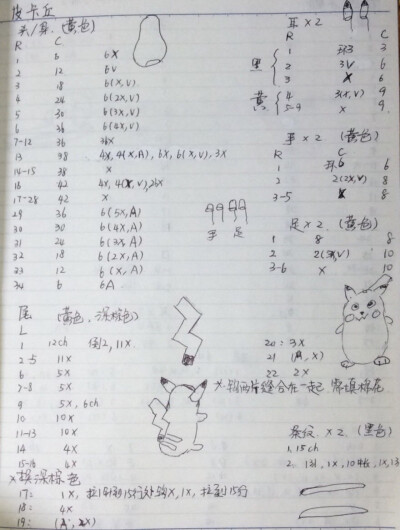 皮卡丘
头/身 (黄色)
R C
1 6 6X
2 12 6V
3 18 6(X,V)
4 24 6(2X,V)
5 30 6(3X,V)
6 36 6(4X,V)
7-12 36 36X
13 38 4X, 6X, 6(X,V), 3X
14-15 38 X
16 42
17-28 42 X
29 36 6(5X,A)
30 30 6(4X,A)
31 24 6(3X,A)
32 18 6(2X,A)
33 12 6(X,A)
34 6 6A
尾 (黄色、深棕色)
L
1 12ch 倒2, 11X
2-5 11X
6 5X
7-8 5X
9 5X, 6ch
10 10X
11-13 10X
14 4X
15-16 4X
X换深棕色
17: 1X, 15行处钩X, 1X,
18: 4X
19:
耳X2
R C
黑 1 3
2 3V 6
3 X 6
黄 4 3(X,V) 9
5-9 X 9
手X2 (黄色)
R C
1 6
2 2(2X,V) 8
3-5 X 8
手 足
足X2 (黄色)
1 8 8
2 10
3-6 X 10
20: 3X
21 (A, X)
22 2X
X 钩两片缝合在一起 需填棉花
条纹 X2 (黑色)
1. 15ch
2.